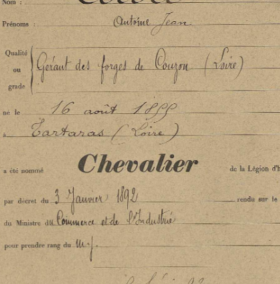 Nom :
Prénome Antoine Jean
Qualité
ou
grade
Gérant des forges de Couzon (Loire)
né le 16 août 1855
à Tartaras (Loire)
a été nommé Chevalier de la Légion d'h
par décret du 3 Janvier 1892 rendu sur le
du Ministre du Commerce et de l'Industrie
pour prendre rang du m. j.